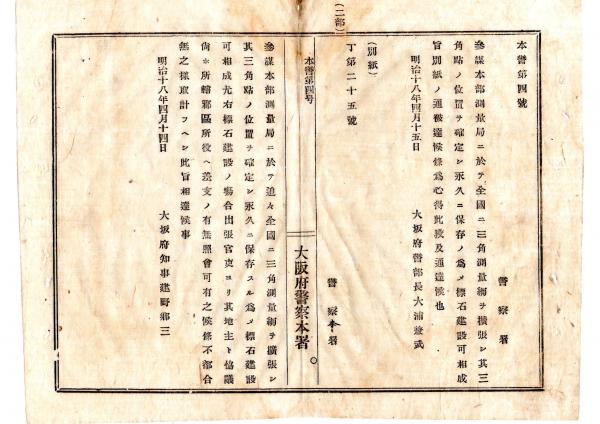 本警第四號
警察署
參謀本部測量局ニ於テ全國ニ三角測量網ヲ擴張シ其三
角點ノ位置ヲ確定シ永久ニ保存ノ爲メ標石建設可相成
旨別紙ノ通被達候條爲心得此段及通達候也
明治十八年四月十五日
大坂府警部長大浦兼武
(別紙)
丁第二十五號
警察本署
本警第四号
大阪府警察本署
(二部)
參謀本部測量局ニ於テ追々全國ニ三角測量網ヲ擴張シ
其三角點ノ位置ヲ確定シ永久ニ保存スル爲メ標石建設
可相成尤右標石建設ノ場合出張官吏ヨリ其地主ト協議
尙ホ所轄郡區役所ヘ差支ノ有無照會可有之候條不都合
無之樣取計フヘシ此旨相達候事
明治十八年四月十四日
大坂府知事建野鄕三